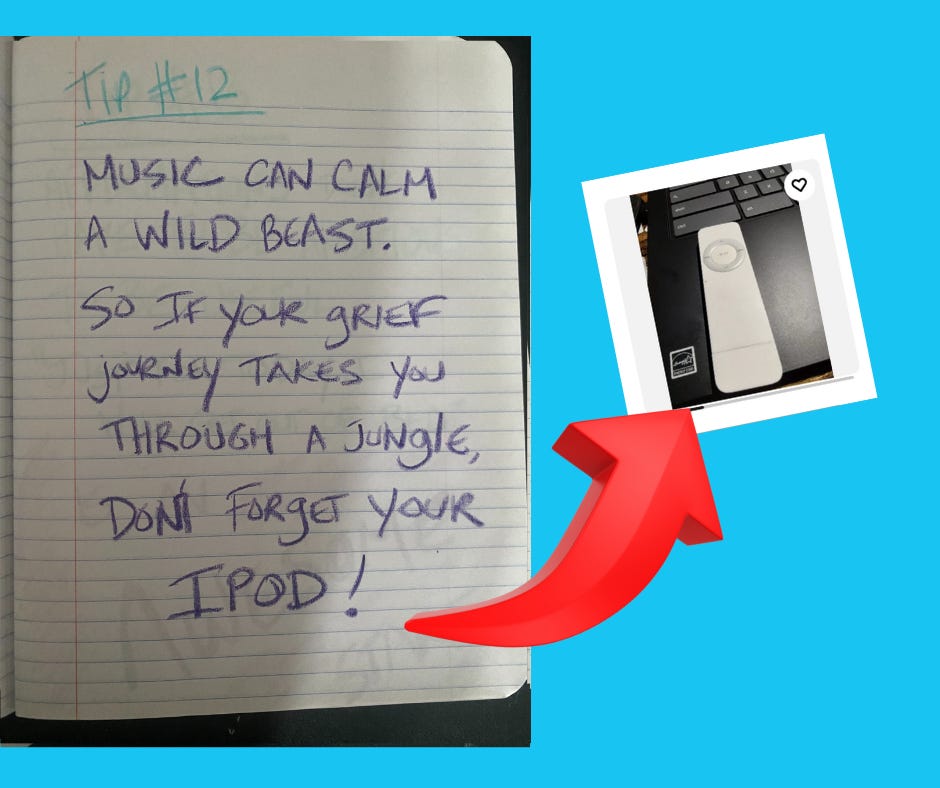 Tip #12
MUSIC CAN CALM
A WILD BEAST.
SO IF YOUR GRIEF
JOURNEY TAKES YOU
THROUGH A JUNGLE,
DON'T FORGET YOUR
IPOD!